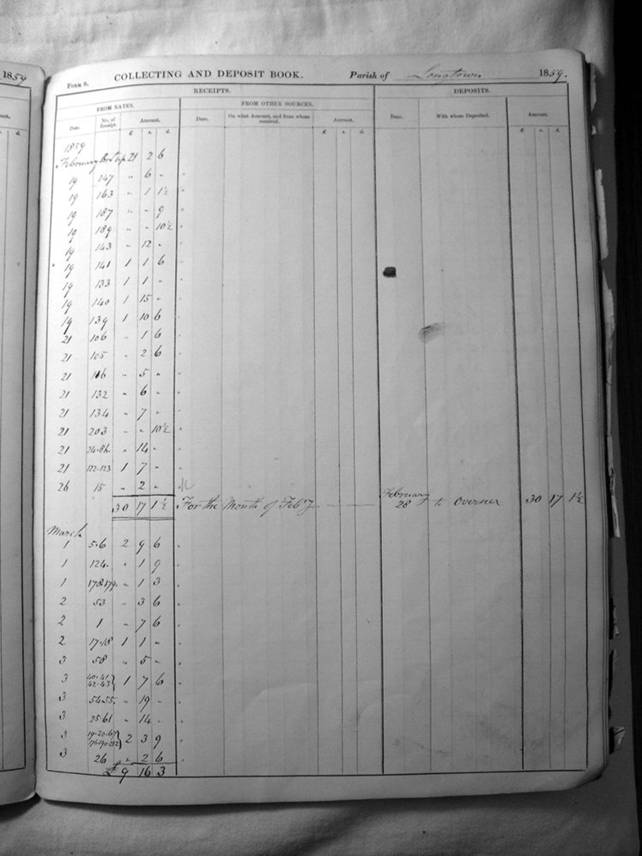 1859
Form 8. COLLECTING AND DEPOSIT BOOK. Parish of Longtown 1859.
RECEIPTS. DEPOSITS.
FROM RATES. FROM OTHER SOURCES.
Date. No. of Receipt. Amount. Date. On what Account, and from whom received. Amount. Date. With whom Deposited. Amount.
£ s. d. £ s. d. £ s. d.
1859
February 21 2 6
19 147 " 6 -
19 163 " 1 1½
19 187 " - 9
19 189 " - 10½
19 143 " 12 -
19 141 1 1 6
19 133 1 1 -
19 140 1 15 -
19 139 1 10 6
21 106 - 1 6
21 105 - 2 6
21 116 - 5 -
21 132 - 6 -
21 134 - 7 -
21 203 - - 10½
21 - 14 -
21 122-123 1 7 -
26 15 - 2 -
30 17 1½ For the Month of Feby February 28 to Overseer 30 17 1½
March
1 5.6 2 9 6
1 124 " 1 9
1 178.179 - 1 3
2 53 - 3 6
2 1 - 7 6
2 17.18 1 1 -
3 58 " 5 -
3 40.41 42.43 1 7 6
3 54.55 - 19 -
3 25.61 - 14 -
3 2 3 9
3 26 - 2 6
£ 9 16 3